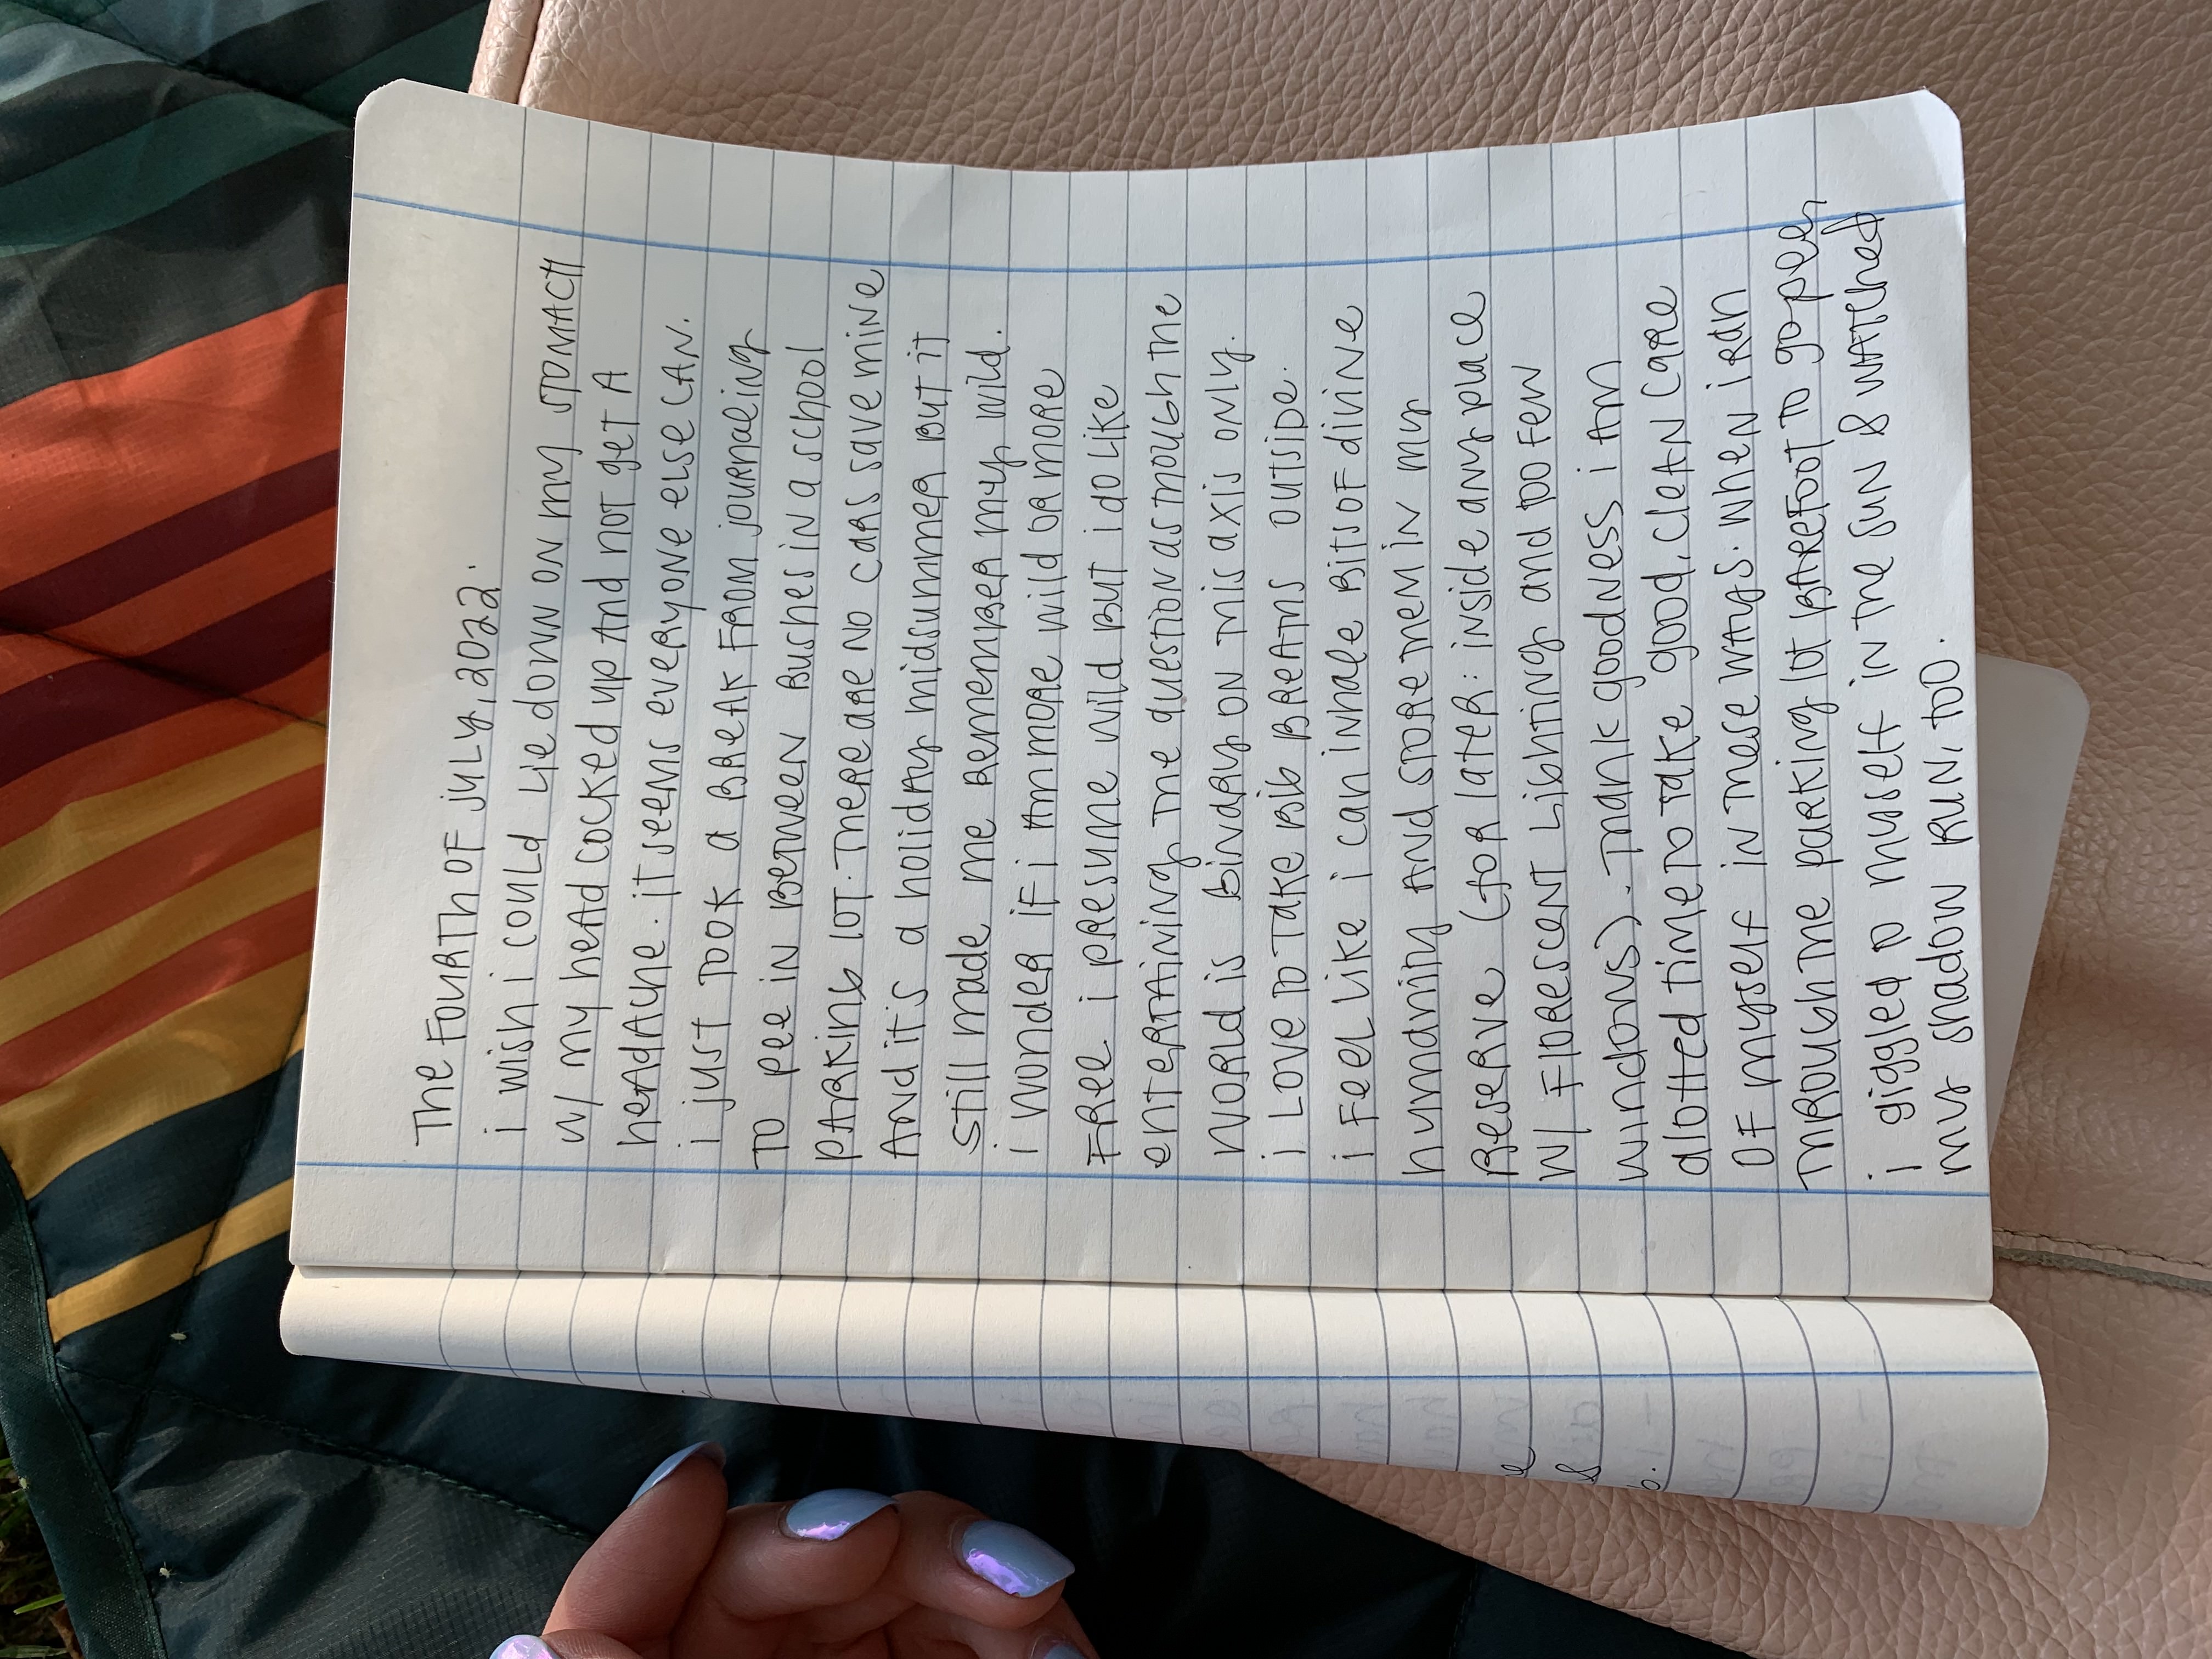 The FOURTh OF jULY, 2022.
i wish i could Lie down ON my STOMACH
w/ my heAd cocked up And not get A
heAdAche. iT seems eveRyONe else CAN.
i just TOOK a BReAK FROM jOURNaLiNg
TO pee iN BeTWEEN BusHes iN a school
PARKiNG lOT. TheRe aRe NO caRs save miNe
ANd iT's a holidAy midsummeR BUT iT
still made me RememBeR my wild.
i WondeR iF i Am moRe wild OR MORe
FRee. i pResume wild BUT i do Like
enTeRTAiNiNg The quesTioN as Though The
WORld is BiNaRy ON This axis ONLy.
i LOVe TO TAKe BiG BReAThs OUTSiDe.
i FeeL Like i can iNhaLe BiTs OF diviNe
humaniTy ANd STORe TheM iN my
ReseRVe (foR lateR: iNside aNy place
W/ FlORescenT LiGhTiNg and TOO Few
wiNdows). ThaNk goodNess i AM
alotted Time TO TaKe good, cleAN CaRe
OF myself iN These WAys. WheN i RaN
ThROUGh The paRKiNg lOT BARefOOT TO go pee,
i giggled TO myself iN The SUN & WATChed
my shadow RUN, TOO.
&